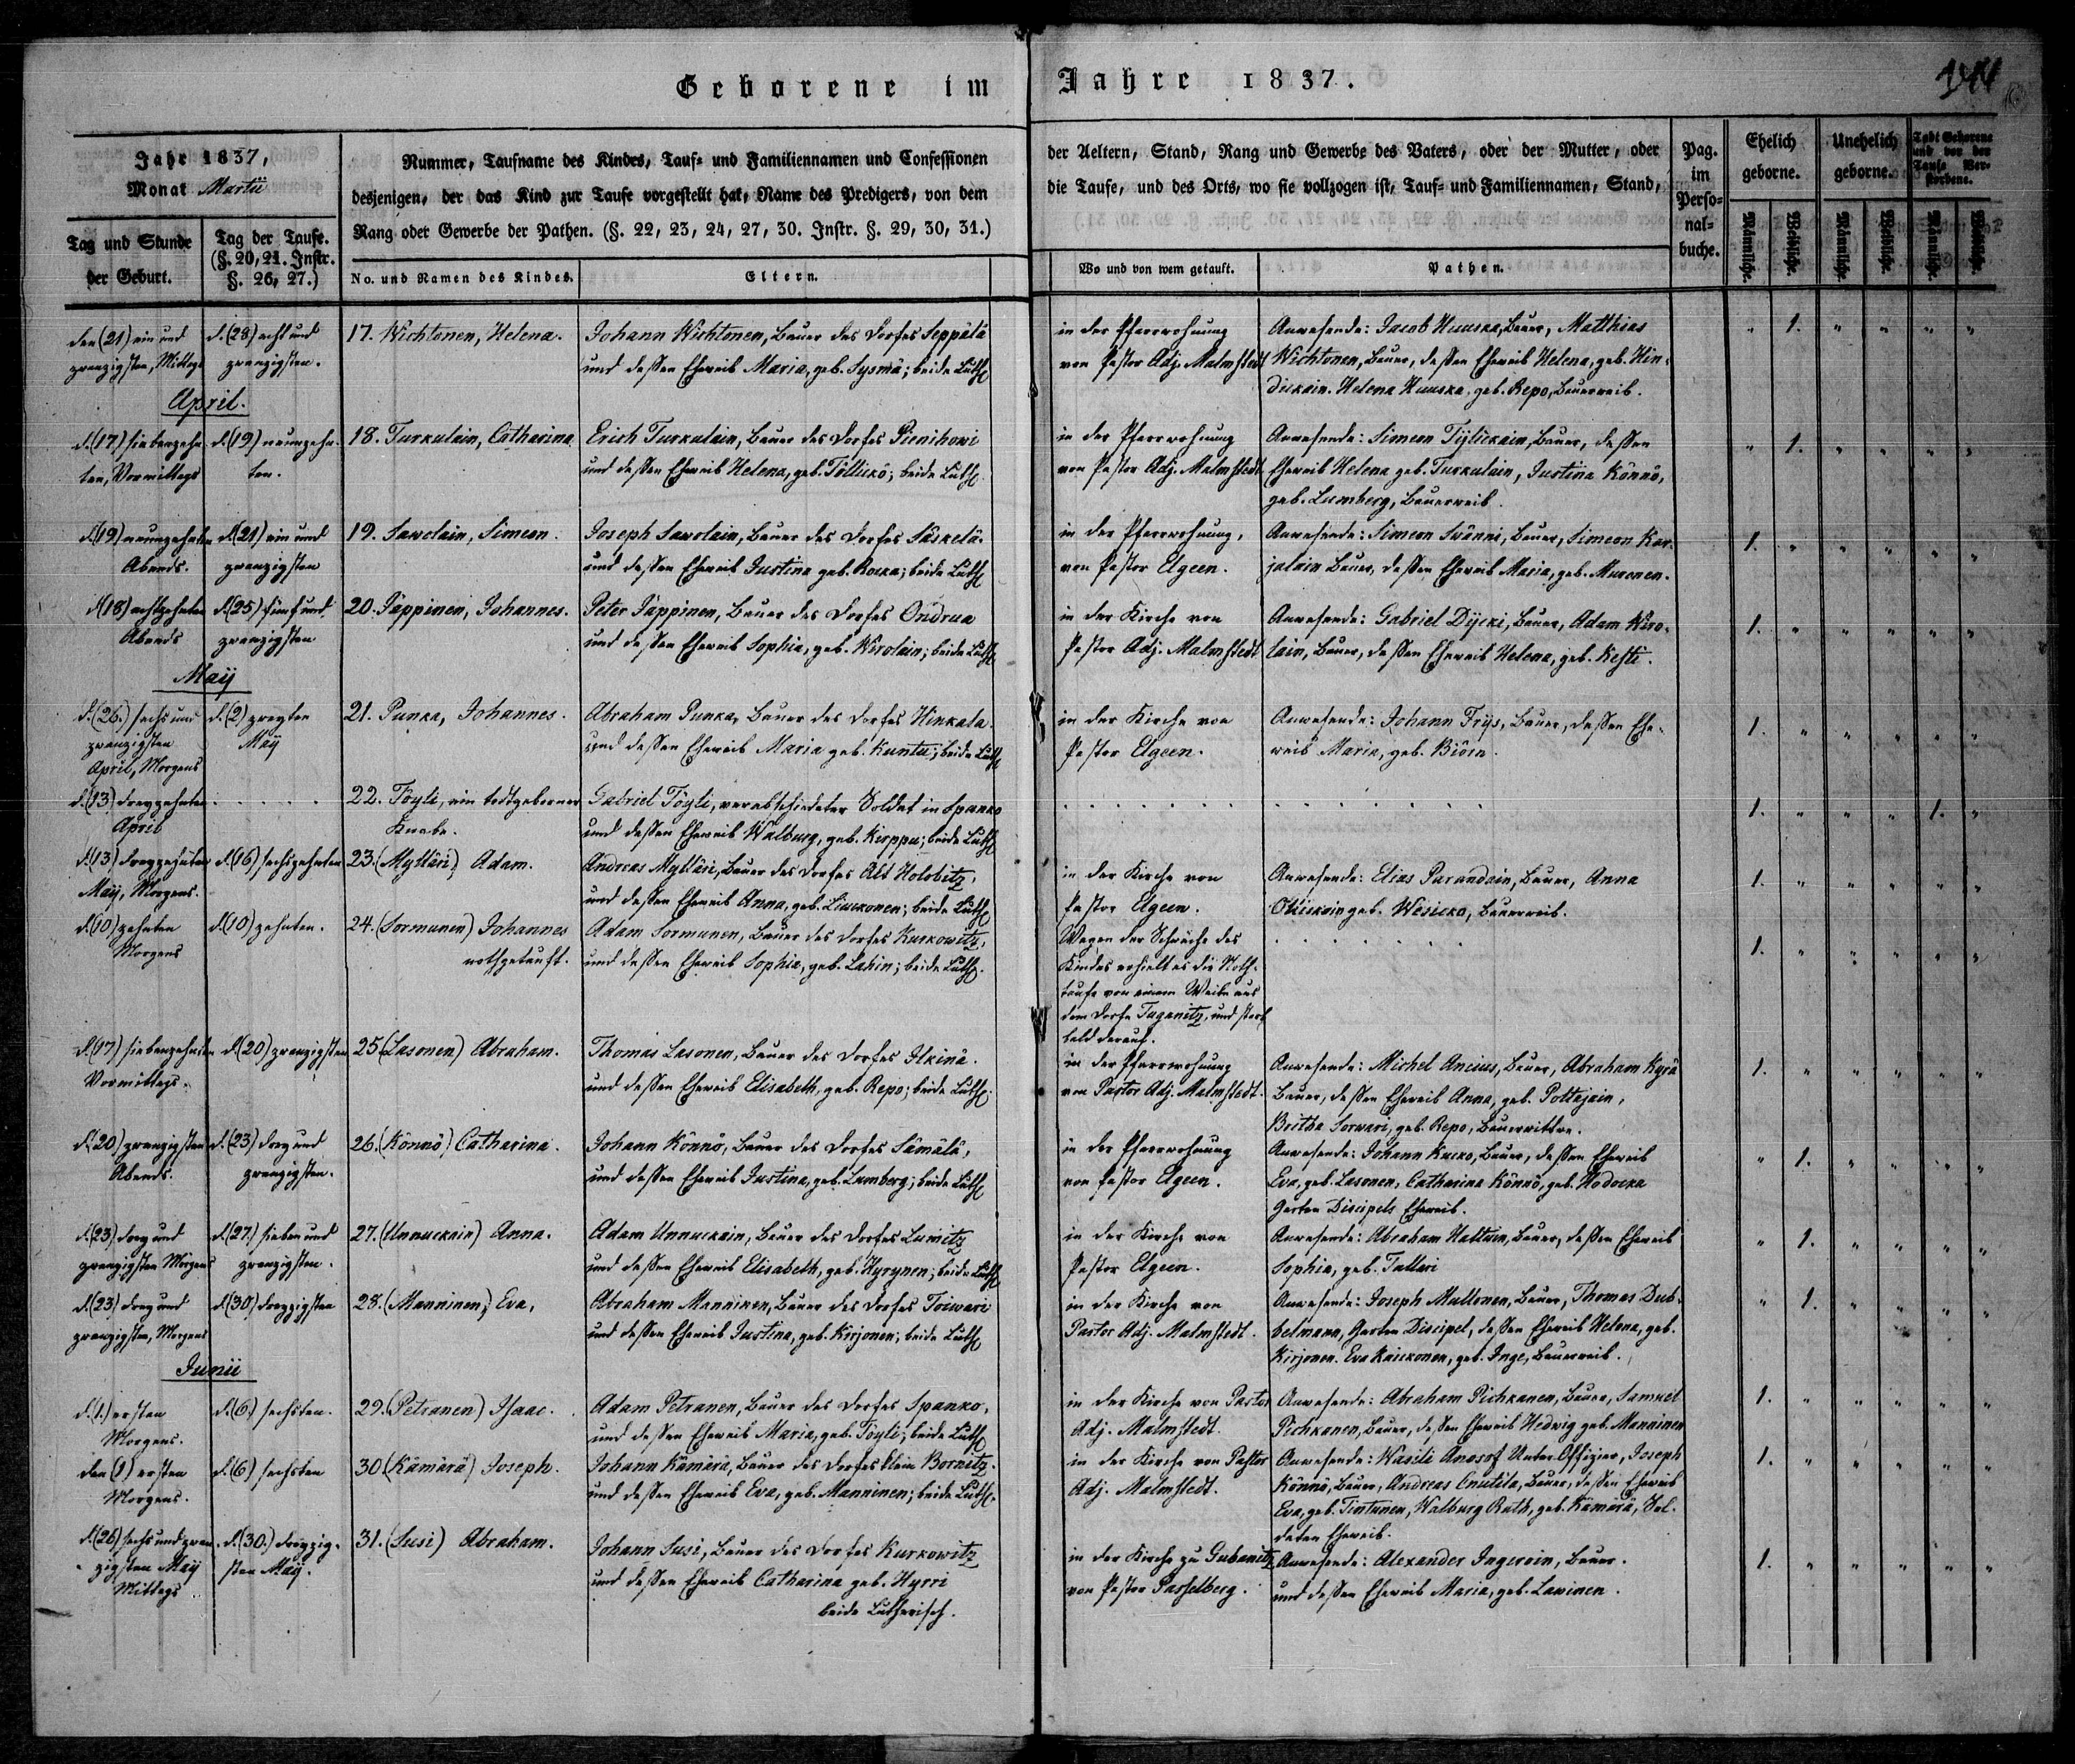 Geborene im Jahre 1837.
Jahr 1837,
Monat Martii
Tag und Stunde der Geburt.
Tag der Taufe. (§. 20, 21. Instr. §. 26, 27.)
Nummer, Taufname des Kindes, Tauf- und Familiennamen und Confessionen der Aeltern, Stand, Rang und Gewerbe des Vaters, oder der Mutter, oder
desjenigen, der das Kind zur Taufe vorgestellt hat, Name des Predigers, von dem die Taufe, und des Orts, wo sie vollzogen ist, Tauf- und Familiennamen, Stand,
Rang oder Gewerbe der Pathen. (§. 22, 23, 24, 27, 30. Instr. §. 29, 30, 31.)
No. und Namen des Kindes.
Eltern.
Wo und von wem getauft.
Pathen.
Pag. im Perso-nal-buche.
Ehelich geborne.
Unehelich geborne.
Todt Geborene und vor der Taufe Ver-storbene.
Männliche. Weibliche. Männliche. Weibliche. Männliche. Weibliche.
den (21) ein und
zwanzigsten, Mittags
d. (28) acht und
zwanzigsten.
17. Wichtonen, Helena.
Johann Wichtonen, Bauer des Dorfes Seppälä
und dessen Eheweib Maria, geb. Sysmä; beide Luth.
in der Pfarrwohnung
von Pastor Adj. Malmstedt
Anwesende: Jacob Huuska, Bauer, Matthias
Wichtonen, Bauer, dessen Eheweib Helena, geb. Hin-
dikain. Helena Huuska, geb. Repo, Bauerweib.
" 1. " " " "
April.
d. (17) siebenzehn-
ten, Vormittags
d. (19) neunzehn-
ten.
18. Turkulain, Catharina
Erich Turkulain, Bauer des Dorfes Pienihowi
und dessen Eheweib Helena, geb. Töllickö; beide Luth.
in der Pfarrwohnung
von Pastor Adj. Malmstedt.
Anwesende: Simeon Tijlickain, Bauer, dessen
Eheweib Helena geb. Turkulain, Justina Könnö,
geb. Lumberg, Bauerweib.
" 1. " " " "
d. (19) neunzehnten
Abends.
d. (21) ein und
zwanzigsten
19. Sawolain, Simeon.
Joseph Sawolain, Bauer des Dorfes Säskelä.
und dessen Eheweib Justina geb. Rocka; beide Luth.
in der Pfarrwohnung,
von Pastor Elgeen.
Anwesende: Simeon Swänni, Bauer, Simeon Kar-
jalain Bauer, dessen Eheweib Maria, geb. Muronen.
1. " " " " "
d. (18) achtzehnten
Abends
d. (25) fünf und
zwanzigsten
20. Päppinen, Johannes.
Peter Päppinen, Bauer des Dorfes Ondrua
und dessen Eheweib Sophia, geb. Wirolain; beide Luth.
in der Kirche von
Pastor Adj. Malmstedt
Anwesende: Gabriel Dijcki, Bauer, Adam Wiro-
lain, Bauer, dessen Eheweib Helena, geb. Kesti.
1. " " " " "
Maij
d. (26.) sechs und
zwanzigsten
April, Morgens
d. (2) zweyten
Maÿ
21. Punka, Johannes.
Abraham Punka, Bauer des Dorfes Hinkala.
und dessen Eheweib Maria geb. Kuntu; beide Luth.
in der Kirche von
Pastor Elgeen.
Anwesende: Johann Frijs, Bauer, dessen Ehe-
weib Maria, geb. Biörn.
1. " " " " "
d. (13) dreyzehnten
April
. . . . .
22. Töyli, ein todtgeborner
Knabe.
Gabriel Töyli, verabschiedeter Soldat in Spanko
und dessen Eheweib Walburg, geb. Kirppu; beide Luth.
1. " " " 1. "
d. (13) dreyzehnten
Maÿ, Morgens.
d. (16) sechszehnten
23. (Mylläri) Adam.
Andreas Mylläri, Bauer des Dorfes Alt Holobitz,
und dessen Eheweib Anna, geb. Liuckonen; beide Luth.
in der Kirche von
Pastor Elgeen.
Anwesende: Elias Purandain, Bauer, Anna
Okickain geb. Wesicko, Bauerweib.
1. " " " " "
d. (10) zehnten
Morgens
d. (10) zehnten.
24. (Sormunen) Johannes
nothgetauft.
Adam Sormunen, Bauer des Dorfes Kurkowitz,
und dessen Eheweib Sophia, geb. Lakin; beide Luth.
Wegen der Schwäche des
Kindes erhielt es die Noth-
taufe von einem Weibe aus
dem Dorfe Taganitz, und starb
bald darauf.
1. " " " " "
d. (17) siebenzehnten
Vormittags.
d. (20) zwanzigsten
25. (Lasonen) Abraham.
Thomas Lasonen, Bauer des Dorfes Ilkinä.
und dessen Eheweib Elisabeth, geb. Repo; beide Luth.
in der Pfarrwohnung
von Pastor Adj. Malmstedt.
Anwesende: Michel Ancius, Bauer, Abraham Kyrä
Bauer, dessen Eheweib Anna, geb. Pottajain,
Britha Sorwari, geb. Repo, Bauerwittwe.
1. " " " " "
d. (20) zwanzigsten
Abends.
d. (23) drey und
zwanzigsten.
26. (Könnö) Catharina.
Johann Könnö, Bauer des Dorfes Sämälä,
und dessen Eheweib Justina, geb. Lumberg; beide Luth.
in der Pfarrwohnung
von Pastor Elgeen.
Anwesende: Johann Kucko, Bauer, dessen Eheweib
Eva, geb. Lasonen, Catharina Könnö, geb. Hodocka
Garten Discipels Eheweib.
" 1. " " " "
d. (23) drey und
zwanzigsten Morgens
d. (27.) sieben und
zwanzigsten.
27. (Unnuckain) Anna.
Adam Unnuckain, Bauer des Dorfes Lumitz
und dessen Eheweib Elisabeth, geb. Hyrynen; beide Luth.
in der Kirche von
Pastor Elgeen.
Anwesende: Abraham Hattuin, Bauer, dessen Eheweib
Sophia, geb. Tallari
" 1. " " " "
d. (23) drey und
zwanzigsten, Morgens
d. (30) dreyzigsten
28. (Manninen) Eva,
Abraham Manninen, Bauer des Dorfes Toiwari
und dessen Eheweib Justina, geb. Kirjonen; beide Luth.
in der Kirche von
Pastor Adj. Malmstedt.
Anwesende: Joseph Mullonen, Bauer, Thomas Dub-
belmann, Garten Discipel, dessen Eheweib Helena, geb.
Kirjonen. Eva Kuickonen, geb. Inge, Bauerweib.
" 1. " " " "
Junii
d. (1.) ersten
Morgens.
d. (6.) sechsten.
29. (Petranen) Isaac.
Adam Petranen, Bauer des Dorfes Spanko,
und dessen Eheweib Maria, geb. Töyli; beide Luth.
in der Kirche von Pastor
Adj. Malmstedt.
Anwesende: Abraham Pichkanen, Bauer, Samuel
Pichkanen, Bauer, dessen Eheweib Hedwig geb. Manninen
1. " " " " "
den (1) ersten
Morgens.
d. (6) sechsten
30. (Kämärä) Joseph.
Johann Kämära, Bauer des Dorfes klein Bornitz.
und dessen Eheweib Eva, geb. Manninen; beide Luth.
in der Kirche von Pastor
Adj. Malmstedt.
Anwesende: Wasili Anosof Unter Offizier, Joseph
Könnö, Bauer, Andreas Onutila, Bauer, dessen Eheweib
Eva, geb. Tirtunen, Walburg Ruth, geb. Kämärä, Sol-
daten Eheweib.
1. " " " " "
d. (26) sechs und zwan-
zigsten Maÿ
Mittags
d. (30.) dreyzig-
sten Maÿ.
31. (Susi) Abraham.
Johann Susi, Bauer des Dorfes Kurkowitz
und dessen Eheweib Catharina geb. Hyrri
beide Lutherisch.
in der Kirche zu Gubanitz
von Pastor Passelberg.
Anwesende: Alexander Ingeroin, Bauer.
und dessen Eheweib Maria, geb. Lawinen.
1. " " " " "